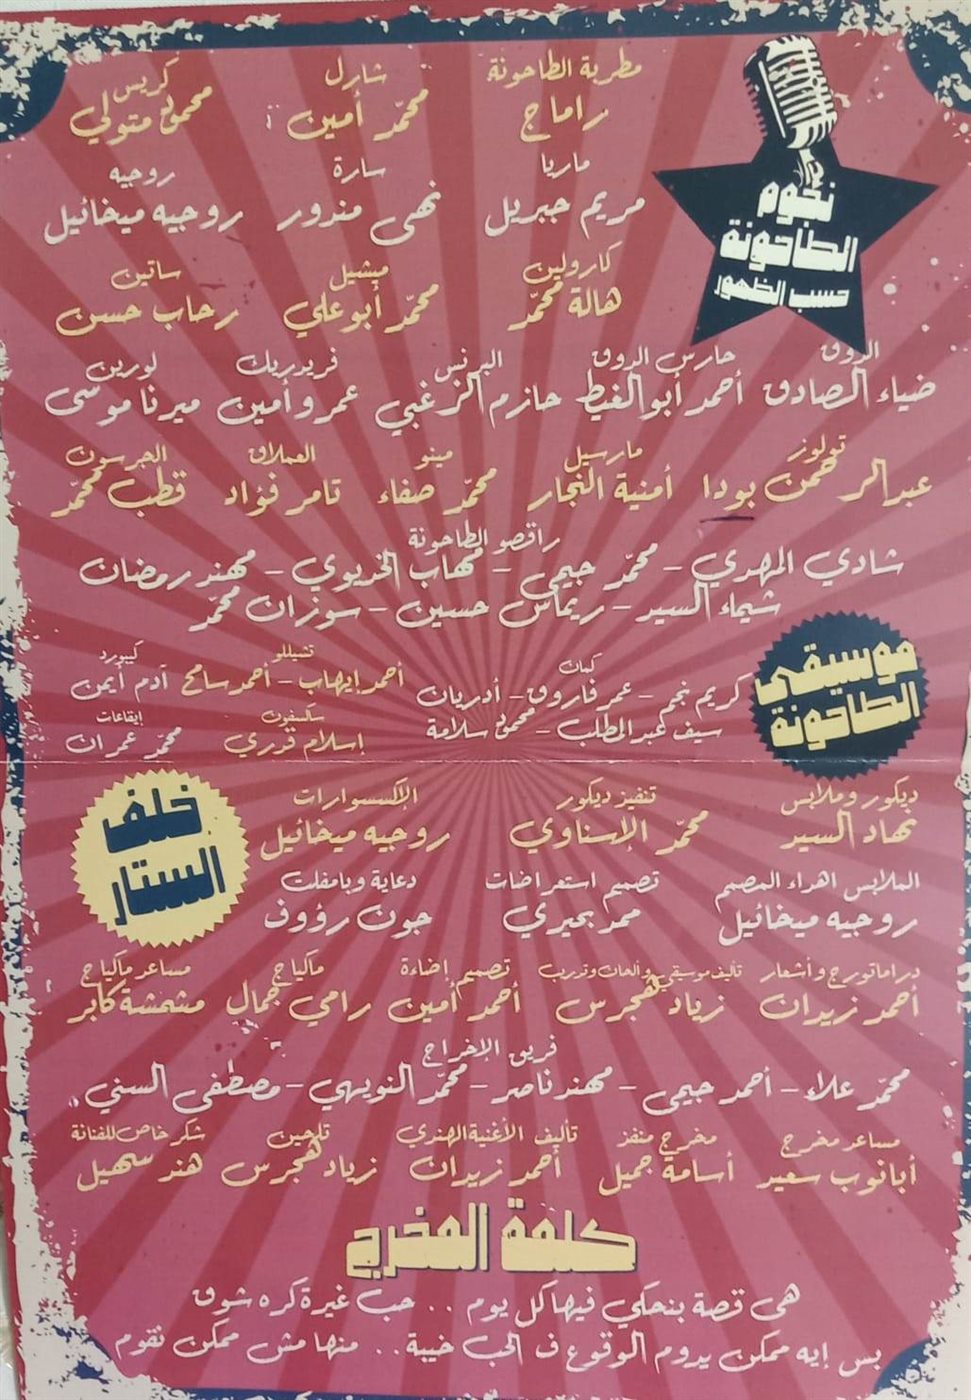 نجوم
الطاحونة
حسب الظهور
مطربة الطاحونة شارل كريس
راماج محمّد أمين محمود متولي
ماريا سارة روجيه
مريم جبريل نهى مندور روجيه ميخائيل
كارولين ميشيل ساتين
هالة محمّد محمّد أبو علي رحاب حسن
الدوق حارس الدوق البرنس فريدريك لورين
ضياء الصادق أحمد أبو الغيط حازم الزغبي عمرو أمين ميرنا موسى
تولوز مارسيل مينو العملاق الجرسون
عبد الرحمن بودا أمنية النجار محمّد صفاء تامر فؤاد قطب محمّد
راقصو الطاحونة
شادي المهدي - محمّد جيمي - مهاب الخديوي - مهند رمضان
شيماء السيد - ريماس حسين - سوزان محمّد
موسيقى
الطاحونة
كمان تشيللو كيبورد
كريم نجم - عمر فاروق - أدريان أحمد إيهاب - أحمد سامح آدم أيمن
سيف عبد المطلب - محمود سلامة
سكسفون إيقاعات
إسلام قدري محمّد عمران
خلف
الستار
ديكور وملابس تنفيذ ديكور الإكسسوارات
نهاد السيد محمّد الإسناوي روجيه ميخائيل
الملابس اهداء المصمم تصميم استعراضات دعاية وبامفلت
روجيه ميخائيل محمد بحيري جون رؤوف
دراماتورج وأشعار تأليف موسيقي وألحان وتدريب تصميم إضاءة ماكياج مساعد ماكياج
أحمد زيدان زياد هجرس أحمد أمين رامي جمال مشمشة كابر
فريق الإخراج
محمّد علاء - أحمد جيمي - مهند ناصر - محمّد النويهي - مصطفى السني
مساعد مخرج مخرج منفذ تأليف الأغنية الهندي تلحين شكر خاص للفنانة
أبانوب سعيد أسامة جميل أحمد زيدان زياد هجرس هند سهيل
كلمة المخرج
هى قصة بنحكي فيها كل يوم .. حب غيرة كره شوق
بس إيه ممكن يدوم الوقوع ف الحب خيبة .. منها مش ممكن نقوم